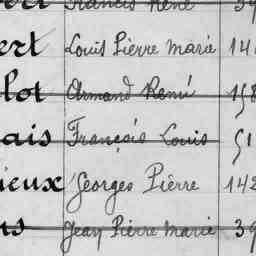 Francis René 39
ert Louis Pierre Marie 141
lot Armand René 158
ais François Louis 51
ieux Georges Pierre 142
ns Jean Pierre Marie 39